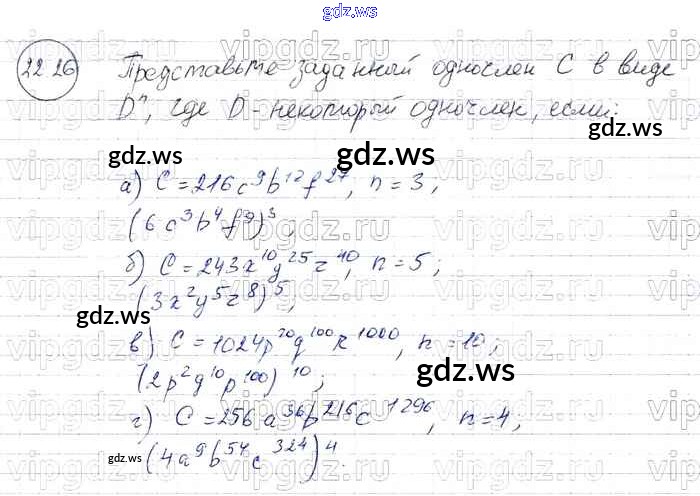 gdz.ws
22.26 Представьте заданный одночлен C в виде
Dⁿ, где D - некоторый одночлен, если:
gdz.ws gdz.ws
а) C = 216c⁹b¹²f²⁷, n = 3;
(6c³b⁴f⁹)³
gdz.ws gdz.ws
б) C = 243x¹⁰y²⁵z⁴⁰, n = 5;
(3x²y⁵z⁸)⁵;
gdz.ws
в) C = 1024p²⁰q¹⁰⁰r¹⁰⁰⁰, n = 10;
(2p²q¹⁰p¹⁰⁰)¹⁰;
gdz.ws gdz.ws
г) C = 256a³⁶b²¹⁶c¹²⁹⁶, n = 4;
(4a⁹b⁵⁴c³²⁴)⁴.
gdz.ws gdz.ws